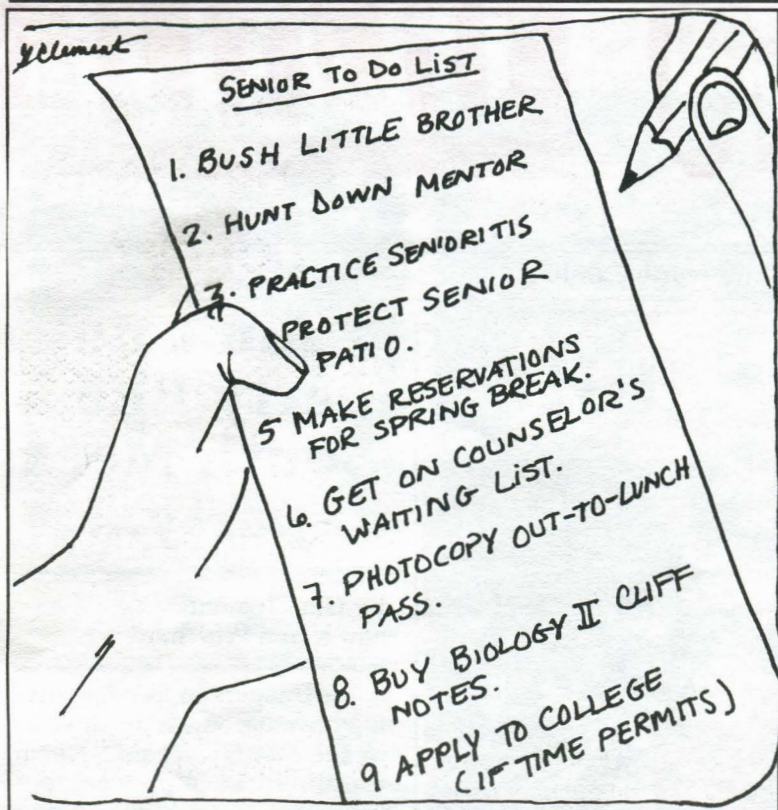 G Clement
SENIOR TO DO LIST
1. BUSH LITTLE BROTHER
2. HUNT DOWN MENTOR
3. PRACTICE SENIORITIS
PROTECT SENIOR
PATIO.
5 MAKE RESERVATIONS
FOR SPRING BREAK.
6. GET ON COUNSELOR'S
WAITING LIST.
7. PHOTOCOPY OUT-TO-LUNCH
PASS.
8. BUY BIOLOGY II CLIFF
NOTES.
9 APPLY TO COLLEGE
(IF TIME PERMITS)